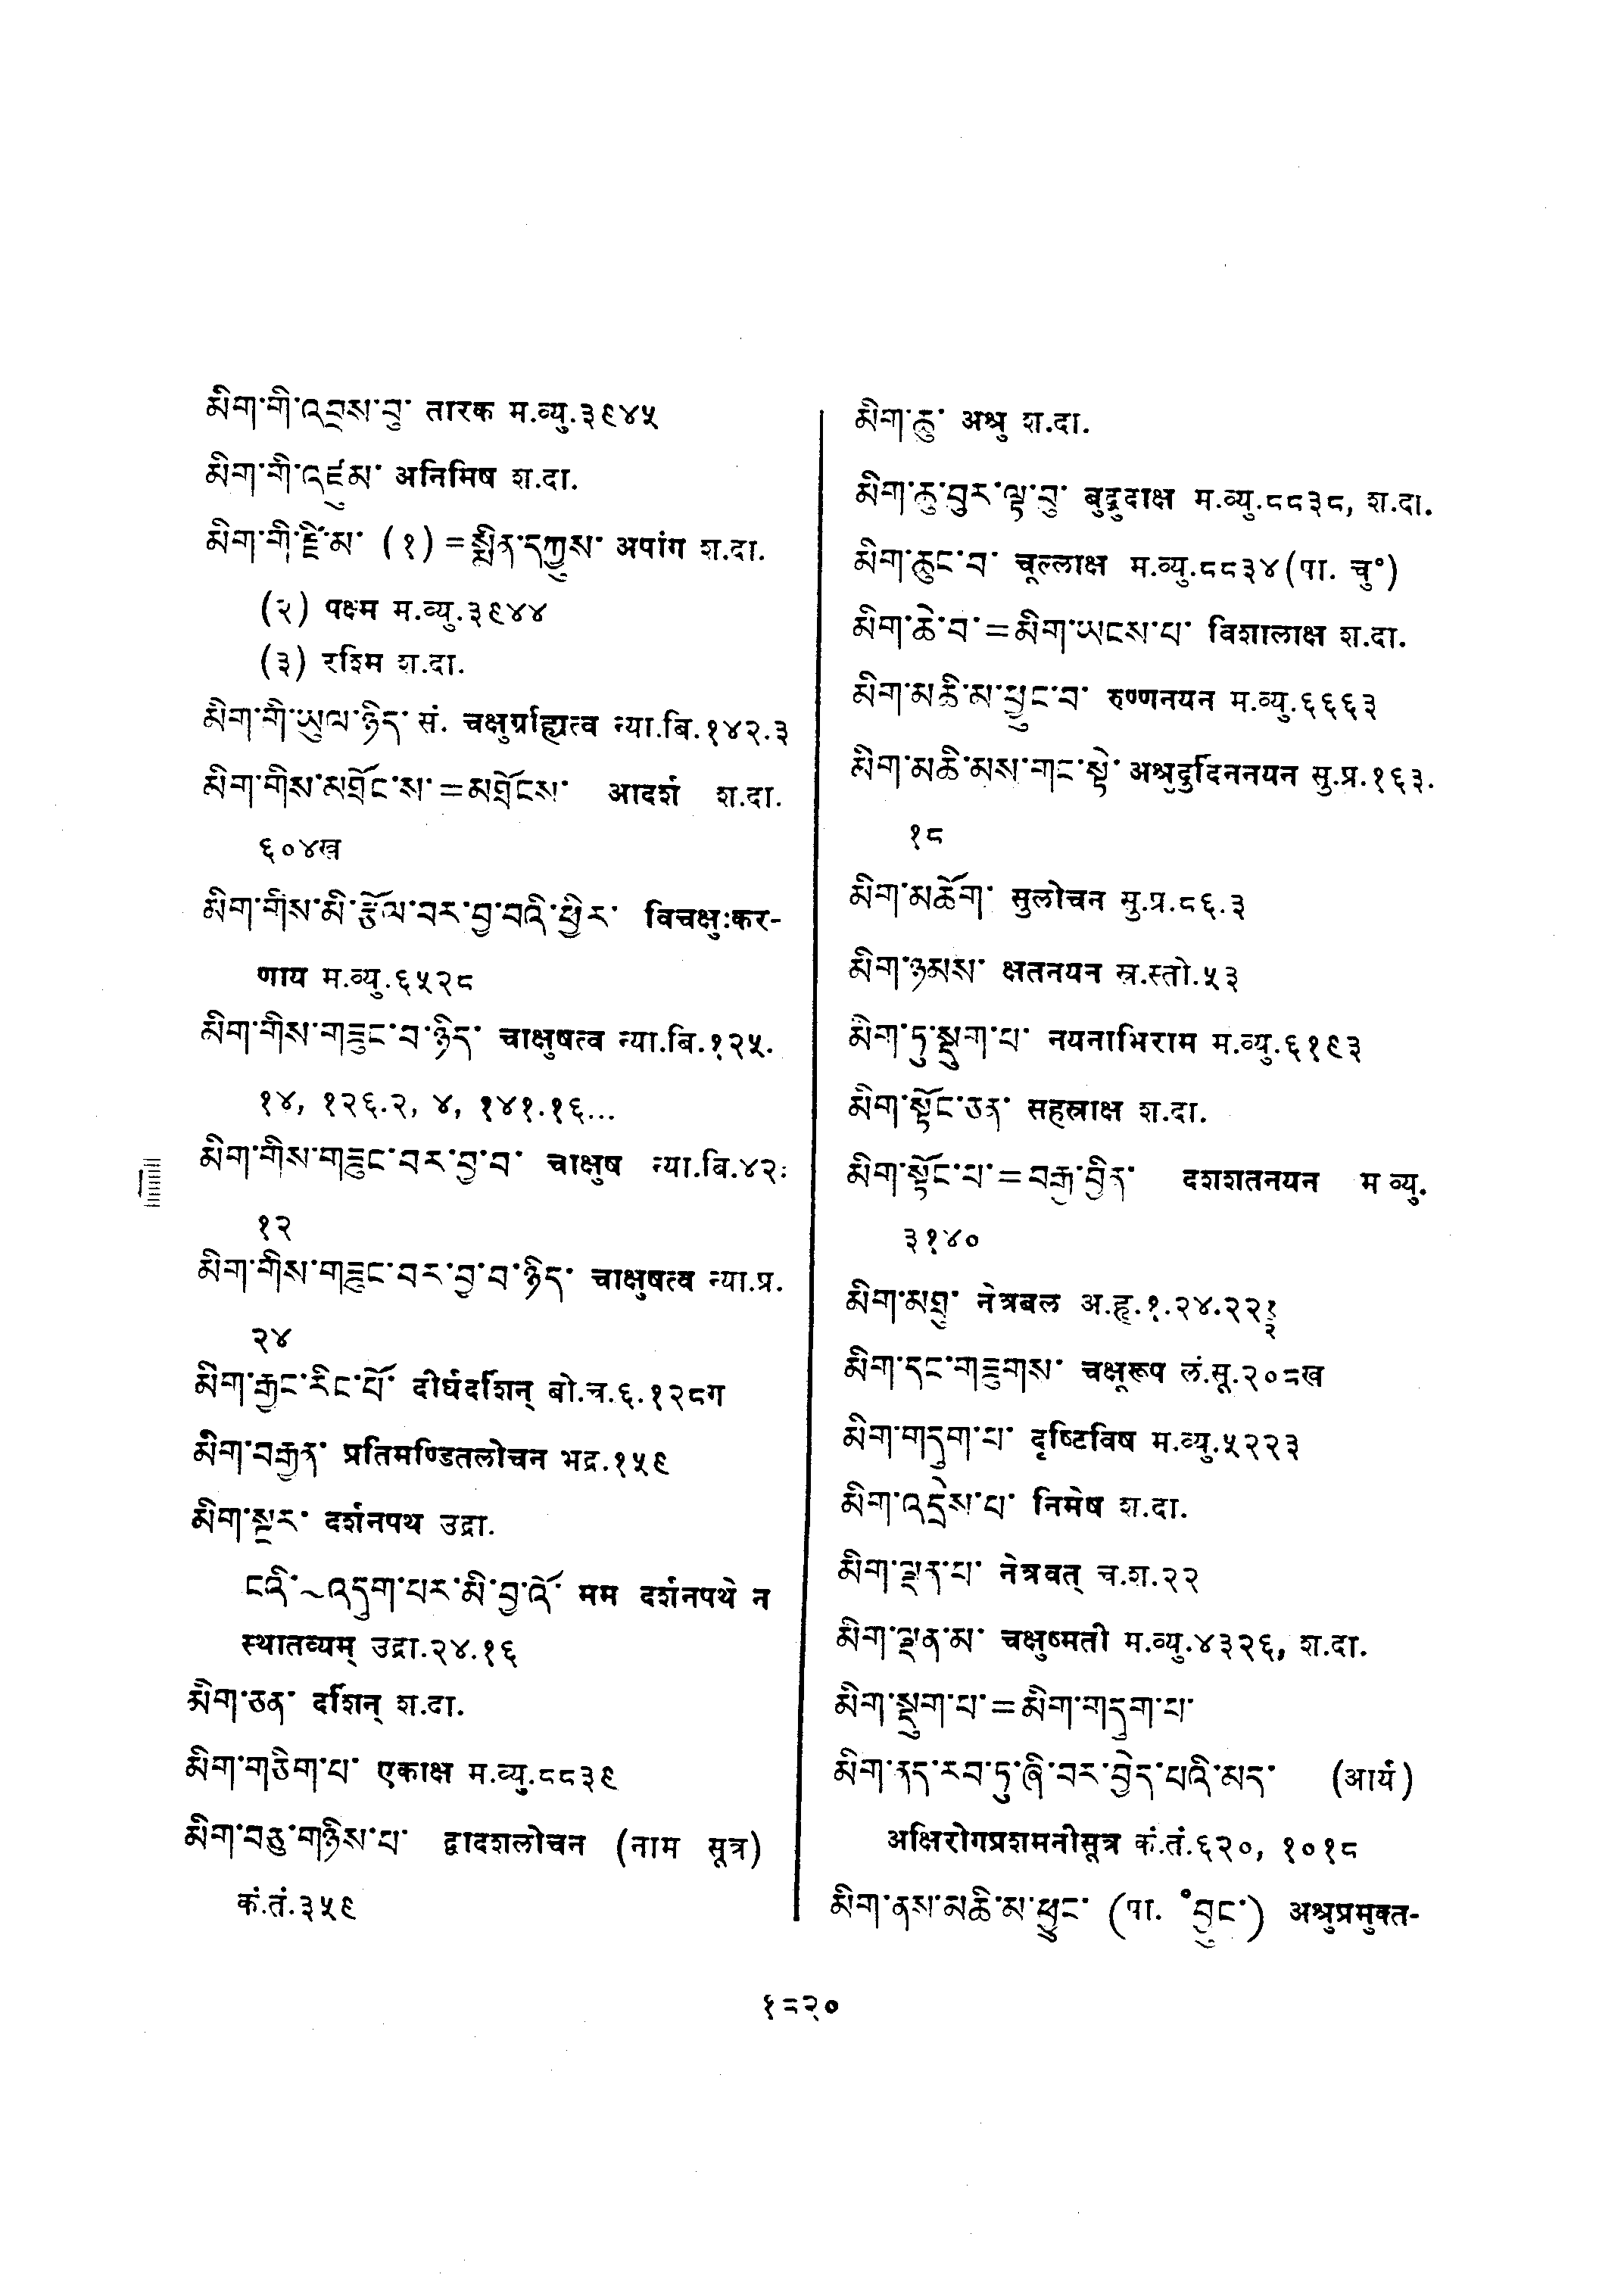 མིག་གི་འབྲས་བུ་ तारक म.व्यु.३९४५
མིག་གི་འཛུམ་ अनिमिष श.दा.
མིག་གི་རྫི་མ་ (१) =སྨིན་དཀྱུས་ अपांग श.दा.
(२) पक्ष्म म.व्यु.३९४४
(३) रश्मि श.दा.
མིག་གི་ཡུལ་ཉིད་ सं. चक्षुर्ग्राह्यत्व न्या.बि.१४२.३
མིག་གིས་མཐོང་ས་=མཐོངས་ आदर्श श.दा.
६०४ख
མིག་གིས་མི་རྩོལ་བར་བྱ་བའི་ཕྱིར་ विचक्षुःकर-
णाय म.व्यु.६५२८
མིག་གིས་གཟུང་བ་ཉིད་ चाक्षुषत्व न्या.बि.१२५.
१४, १२६.२, ४, १४१.१६...
མིག་གིས་གཟུང་བར་བྱ་བ་ चाक्षुष न्या.बि.४२:
१२
མིག་གིས་གཟུང་བར་བྱ་བ་ཉིད་ चाक्षुषत्व न्या.प्र.
२४
མིག་རྒྱང་རིང་པོ་ दीर्घदर्शिन् बो.च.६.१२८ग
མིག་བརྒྱན་ प्रतिमण्डितलोचन भद्र.१५९
མིག་སྔར་ दर्शनपथ उद्रा.
ངའི་~འདུག་པར་མི་བྱའོ་ मम दर्शनपथे न
स्थातव्यम् उद्रा.२४.१६
མིག་ཅན་ दर्शिन् श.दा.
མིག་གཅིག་པ་ एकाक्ष म.व्यु.८८३९
མིག་བཅུ་གཉིས་པ་ द्वादशलोचन (नाम सूत्र)
कं.तं.३५९
མིག་ཆུ་ अश्रु श.दा.
མིག་ཆུ་བུར་ལྟ་བུ་ बुद्बुदाक्ष म.व्यु.८८३८, श.दा.
མིག་ཆུང་བ་ चूल्लाक्ष म.व्यु.८८३४(पा. चु°)
མིག་ཆེ་བ་=མིག་ཡངས་པ་ विशालाक्ष श.दा.
མིག་མཆི་མ་ཕྱུང་བ་ रुण्णनयन म.व्यु.६६६३
མིག་མཆི་མས་གང་སྟེ་ अश्रुदुर्दिननयन सु.प्र.१६३.
१८
མིག་མཆོག་ सुलोचन सु.प्र.८६.३
མིག་ཉམས་ क्षतनयन स्र.स्तो.५३
མིག་ཏུ་སྡུག་པ་ नयनाभिराम म.व्यु.६१९३
མིག་སྟོང་ཅན་ सहस्राक्ष श.दा.
མིག་སྟོང་པ་=བརྒྱ་བྱིན་ दशशतनयन म व्यु.
३१४०
མིག་མཐུ་ नेत्रबल अ.हृ.१.२४.२२१/२
མིག་དང་གཟུགས་ चक्षूरूप लं.सू.२०८ख
མིག་གདུག་པ་ दृष्टिविष म.व्यु.५२२३
མིག་འདྲེས་པ་ निमेष श.दा.
མིག་ལྡན་པ་ नेत्रवत् च.श.२२
མིག་ལྡན་མ་ चक्षुष्मती म.व्यु.४३२६, श.दा.
མིག་སྡུག་པ་=མིག་གདུག་པ་
མིག་ནད་རབ་ཏུ་ཞི་བར་བྱེད་པའི་མད་ (आर्य)
अक्षिरोगप्रशमनीसूत्र कं.तं.६२०, १०१८
མིག་ནས་མཆི་མ་ཕྱུང་ (पा. °བྱུང་) अश्रुप्रमुक्त-
१८२०